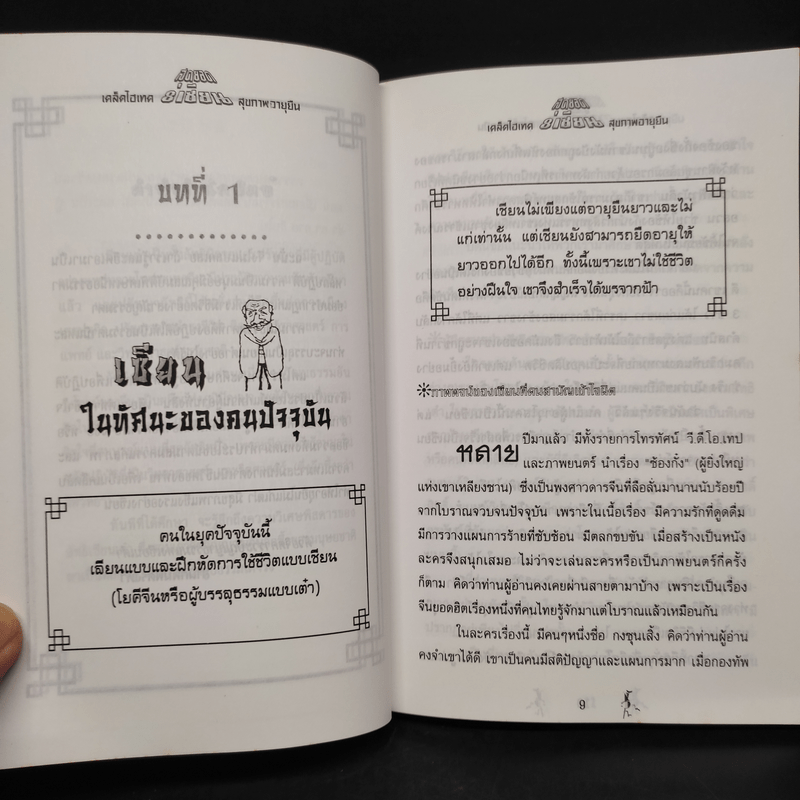 สุดยอด
เคล็ดไฮเทค ยู่เซียน สุขภาพอายุยืน
บทที่ 1
เซียน
ในทัศนะของคนปัจจุบัน
คนในยุคปัจจุบันนี้
เลียนแบบและฝึกหัดการใช้ชีวิตแบบเซียน
(โยคีจีนหรือผู้บรรลุธรรมแบบเต๋า)
สุดยอด
เคล็ดไฮเทค ยู่เซียน สุขภาพอายุยืน
เซียนไม่เพียงแต่อายุยืนยาวและไม่
แก่เท่านั้น แต่เซียนยังสามารถยืดอายุให้
ยาวออกไปได้อีก ทั้งนี้เพราะเขาไม่ใช้ชีวิต
อย่างฝืนใจ เขาจึงสำเร็จได้พรจากฟ้า
ภาพพจน์ของเซียนที่คนสามัญเข้าใจผิด
หลาย ปีมาแล้ว มีทั้งรายการโทรทัศน์ วี.ดี.โอ.เทป
และภาพยนตร์ นำเรื่อง "ซ้องกั๋ง" (ผู้ยิ่งใหญ่
แห่งเขาเหลียงซาน) ซึ่งเป็นพงศาวดารจีนที่ลือลั่นมานานนับร้อยปี
จากโบราณจวบจนปัจจุบัน เพราะในเนื้อเรื่อง มีความรักที่ดูดดื่ม
มีการวางแผนการร้ายที่ซับซ้อน มีตลกขบขัน เมื่อสร้างเป็นหนัง
ละครจึงสนุกเสมอ ไม่ว่าจะเล่นละครหรือเป็นภาพยนตร์กี่ครั้ง
ก็ตาม คิดว่าท่านผู้อ่านคงเคยผ่านสายตามาบ้าง เพราะเป็นเรื่อง
จีนยอดฮิตเรื่องหนึ่งที่คนไทยรู้จักมาแต่โบราณแล้วเหมือนกัน
ในละครเรื่องนี้ มีคนๆหนึ่งชื่อ กงซุนเสิ้ง คิดว่าท่านผู้อ่าน
คงจำเขาได้ดี เขาเป็นคนมีสติปัญญาและแผนการมาก เมื่อกองทัพ
9